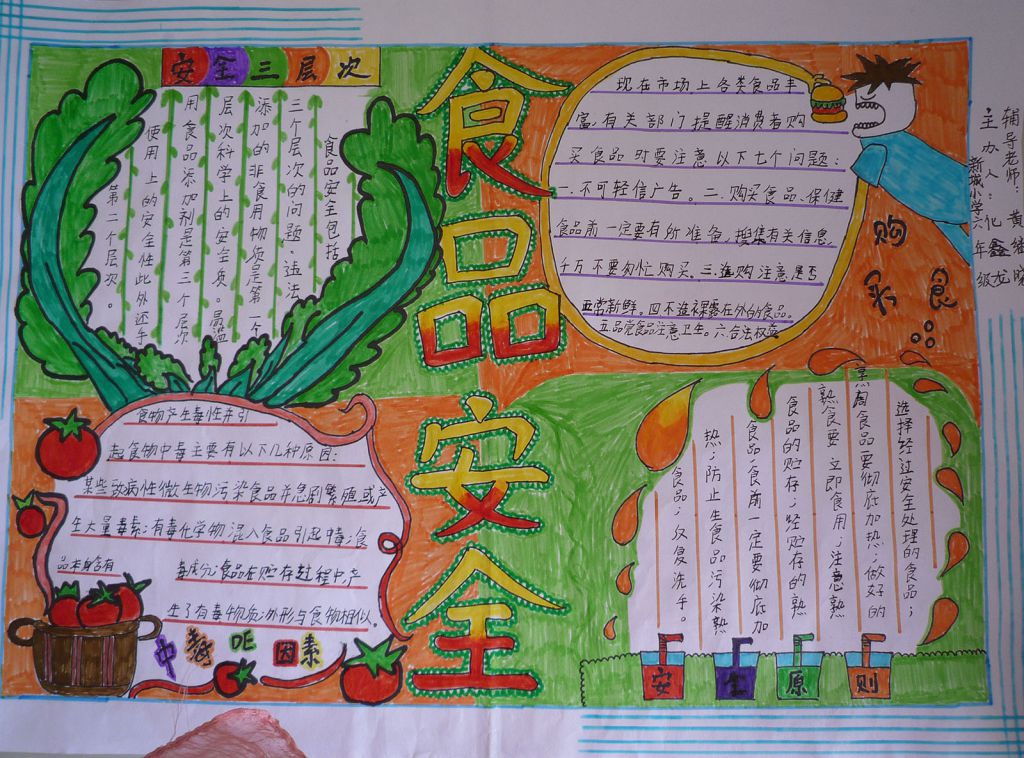 安全三层次
食品安全包括
三个层次的问题。违法
添加的非食用物质是第一个
层次科学上的安全质。最滥
用食品添加剂是第三个层次
使用上的安全性此外还乎
第二个层次。
食品安全
现在市场上各类食品丰
富,有关部门提醒消费者购
买食品时要注意以下七个问题:
一.不可轻信广告。二.购买食品.保健
食品前一定要有所准备,搜集有关信息,
千万不要匆忙购买。三.选购注意是否
正常新鲜。四不选裸露在外的食品。
五品尝食品注意卫生。六.合法权益
购
买食
辅导老师:黄继晓
主办人:化鑫龙
新城小学六年级
食物产生毒性并引
起食物中毒主要有以下几种原因:
某些致病性微生物污染食品并急剧繁殖或产
生大量毒素;有毒化学物混入食品引起中毒;食
品本身含有毒成分;食品在贮存过程中产
生了有毒物质;外形与食物相似。
中毒吃因素
选择经过安全处理的食品;
烹调食品要彻底加热;做好的
熟食要立即食用;注意熟
食品的贮存;经贮存的熟
食品,食前一定要彻底加
热;防止生食品污染熟
食品;反复洗手。
安全原则